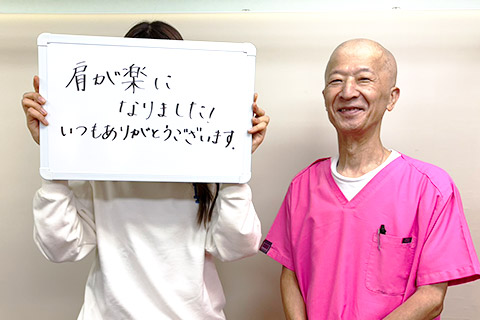 肩が楽に
なりました!
いつもありがとうございます.